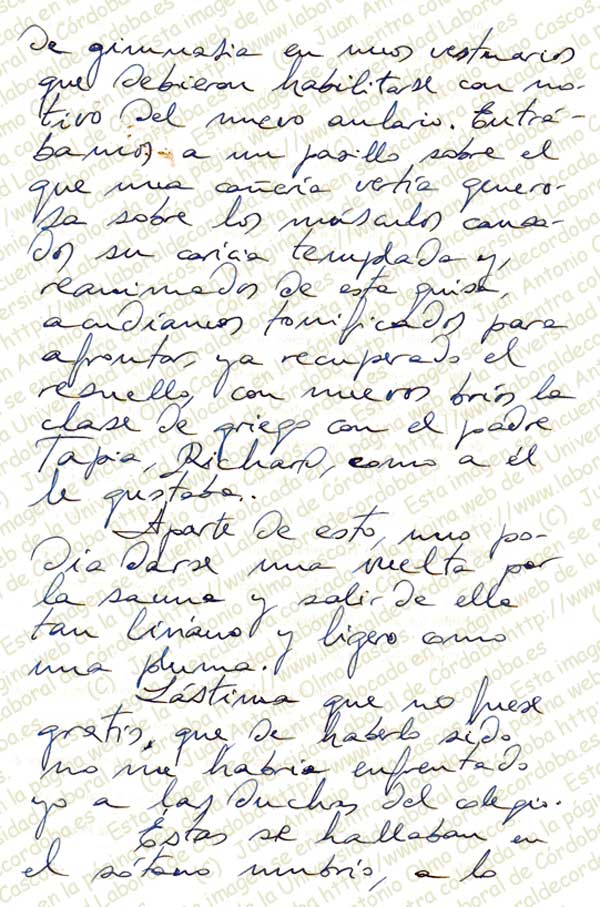 de gimnasia en unos vestuarios
que debieron habilitarse con mo-
tivo del nuevo aulario. Entrá-
bamos a un pasillo sobre el
que una cañería vertía genero-
sa sobre los músculos cansa-
dos su caricia templada y,
reanimados de esta guisa,
acudíamos tonificados para
afrontar, ya recuperado el
resuello, con nuevos bríos la
clase de griego con el padre
Tapia, Richard, como a él
le gustaba.
Aparte de esto, uno po-
día darse una vuelta por
la sauna y salir de ella
tan liviano y ligero como
una pluma.
Lástima que no fuese
gratis, que de haberlo sido
no me habría enfrentado
yo a las duchas del colegio.
Éstas se hallaban en
el sótano umbrío, a lo